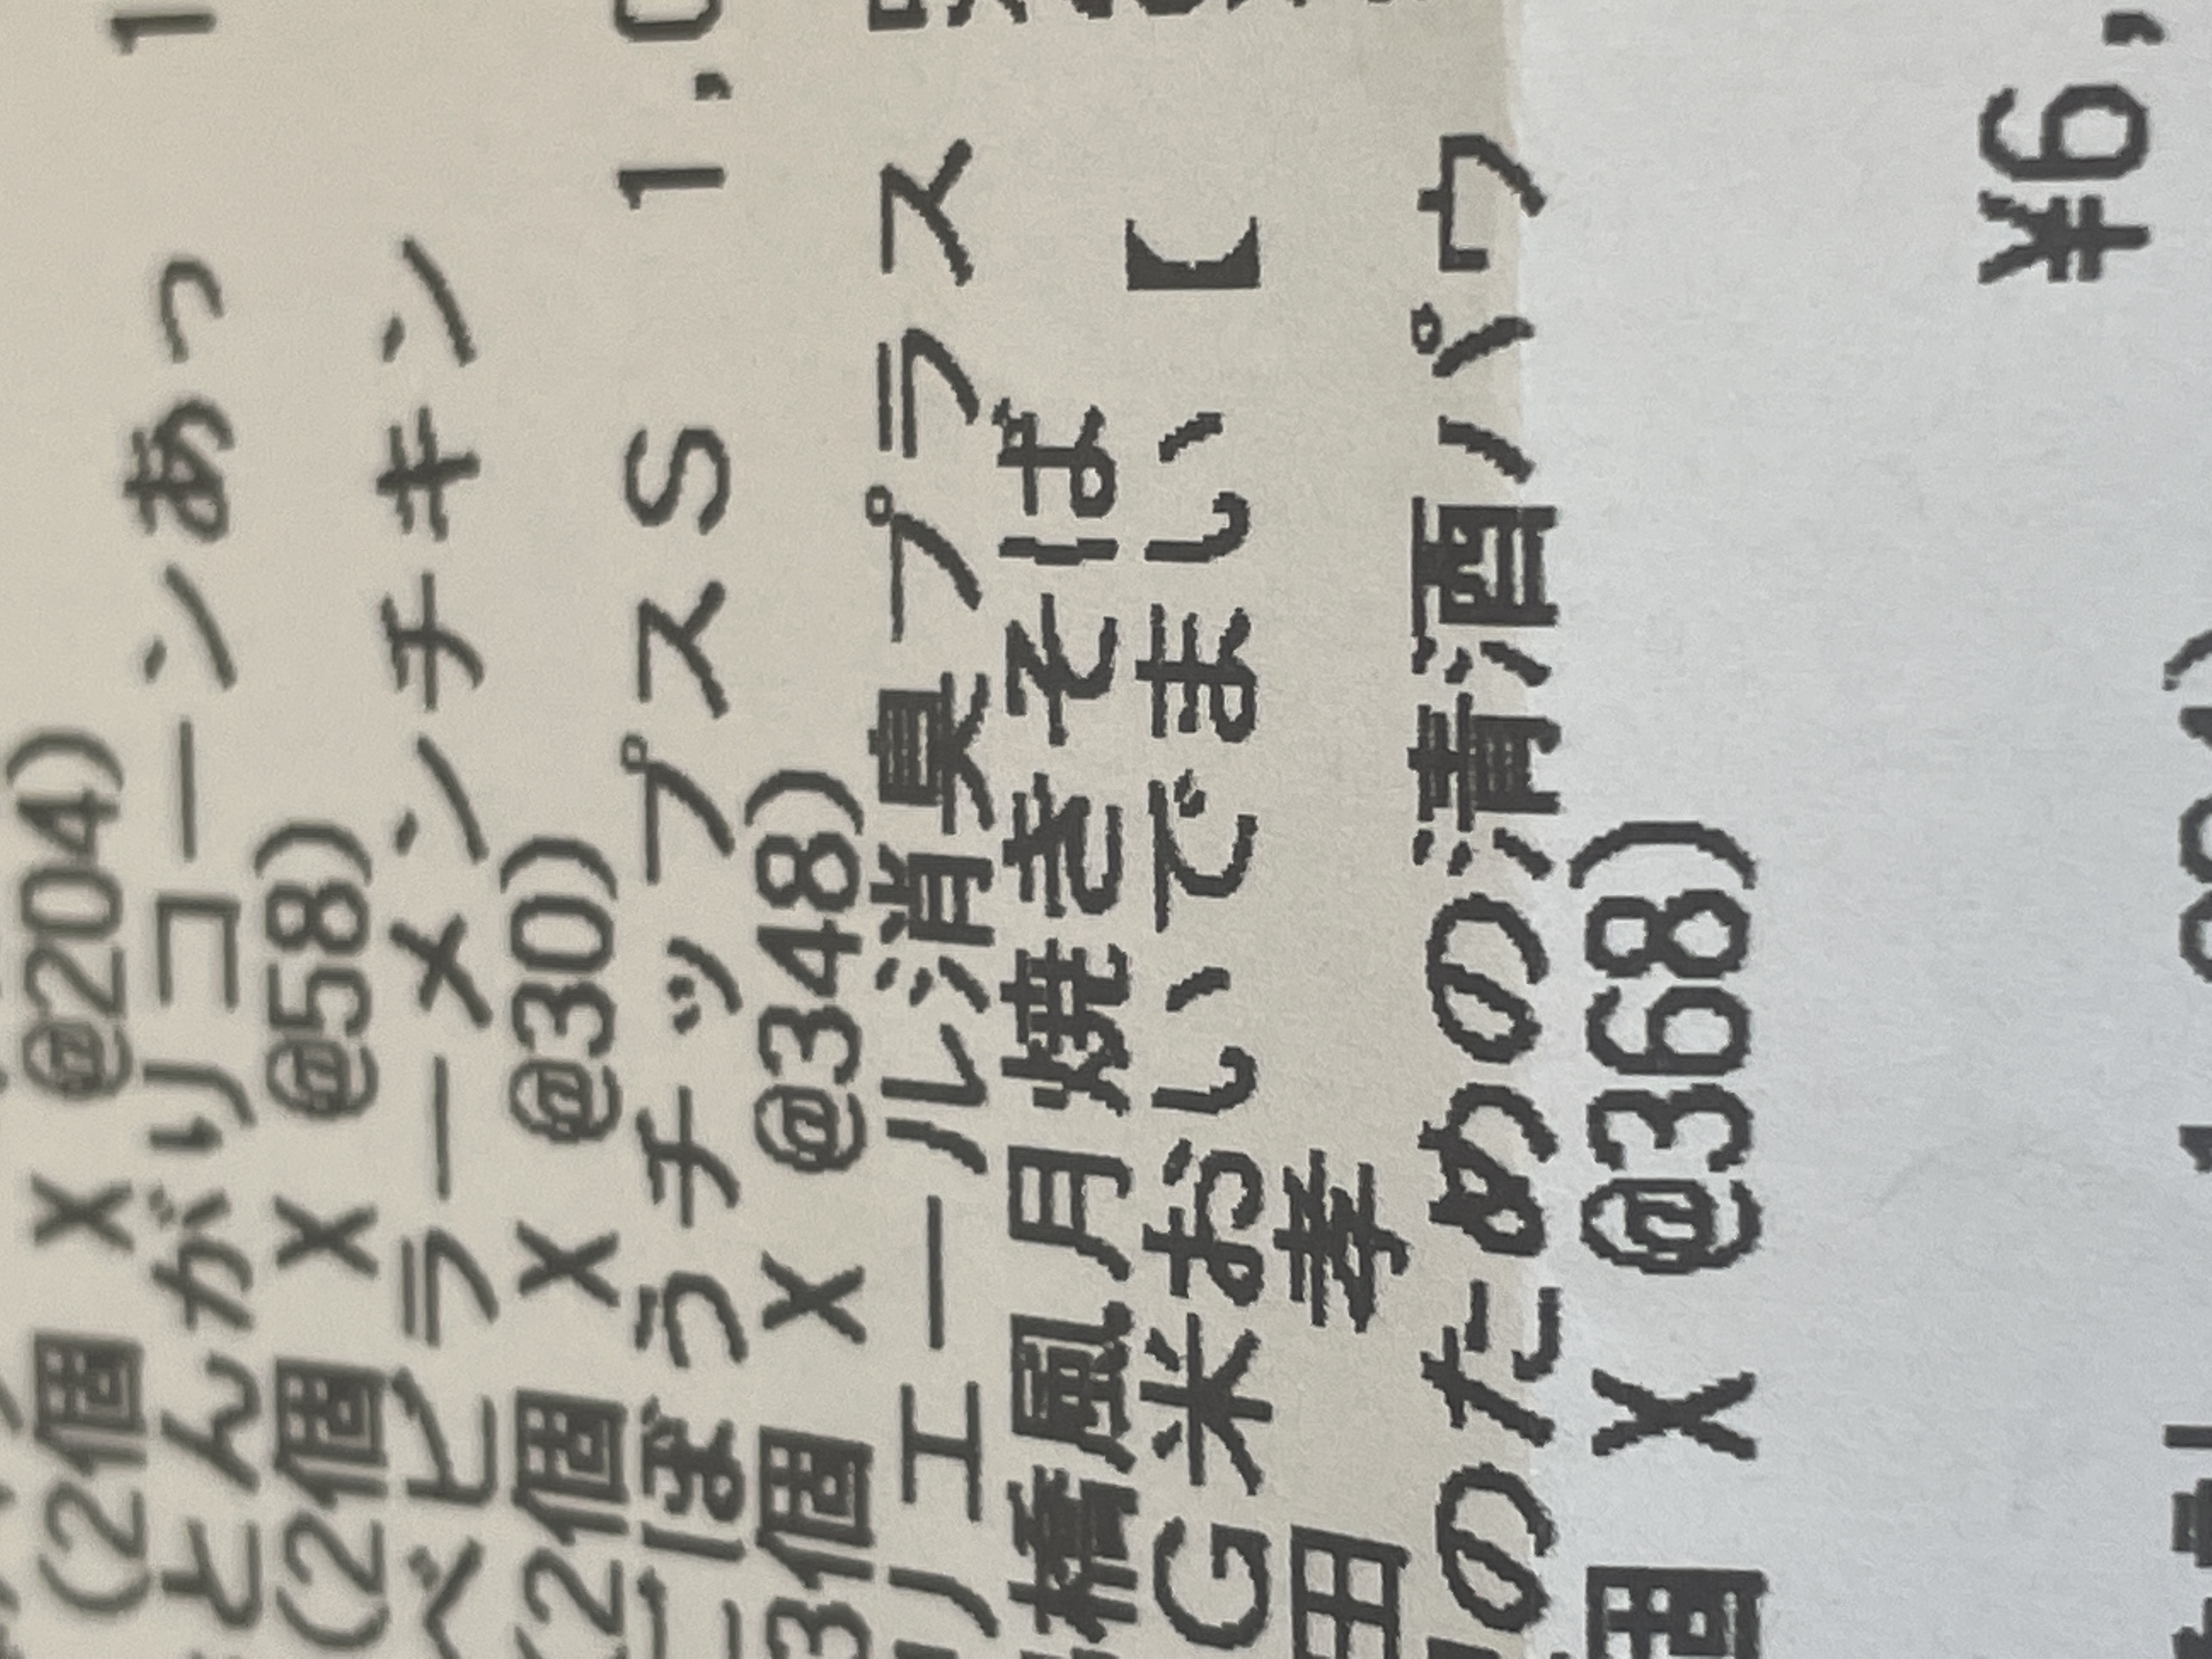 (2個 X @204)
とんがりコーンあっ 1
(2個 X @58)
ベビラーメンチキン
(2個 X @30)
ごぼうチップスS 1,0
3個 X @348)
リエール消臭プラス
橋風月焼きそば
G米おいでまい【
田 孝
のための清酒パウ
個 X @368)
¥6,